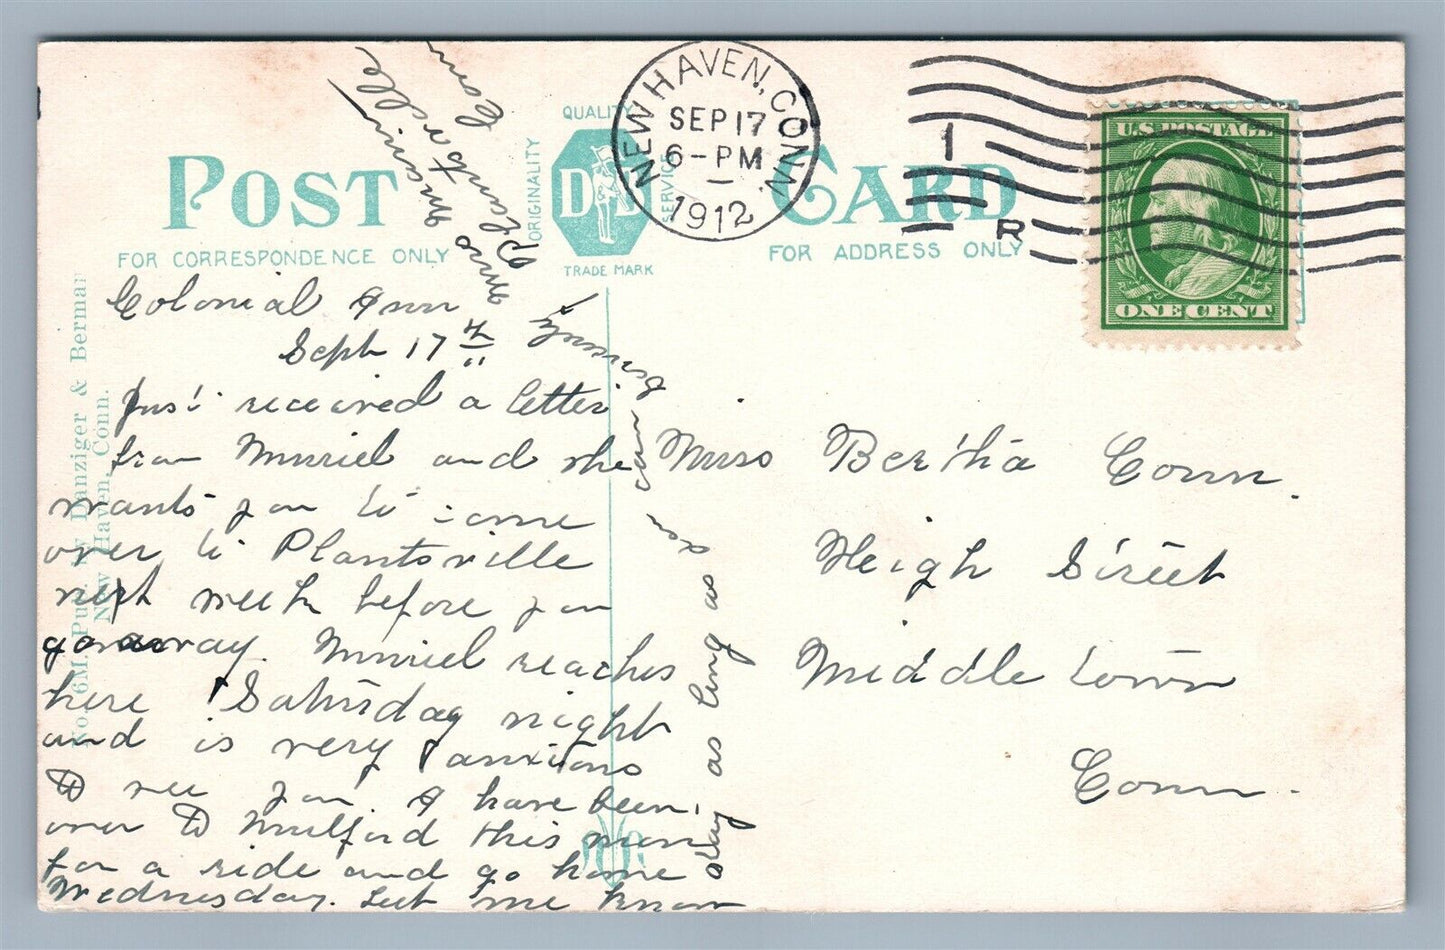 POST CARD
FOR CORRESPONDENCE ONLY
FOR ADDRESS ONLY
QUALITY
ORIGINALITY
SERVICE
D D
TRADE MARK
NEW HAVEN, CONN.
SEP 17
6-PM
1912
1
R
U.S. POSTAGE
ONE CENT
6M. Pub. by Danziger & Berman
New Haven, Conn.
Colonial Inn
Sept 17th
Just received a letter
from Muriel and she
wants you to come
over to Plantsville
next week before you
go away. Muriel reaches
here Saturday night
and is very anxious
to see you. I have been
over to Milford this morn
for a ride and go home
Wednesday. Let me know
stay as long as you can
Main
Plantsville
Conn
Miss Bertha Conn.
Heigh Street
Middletown
Conn.